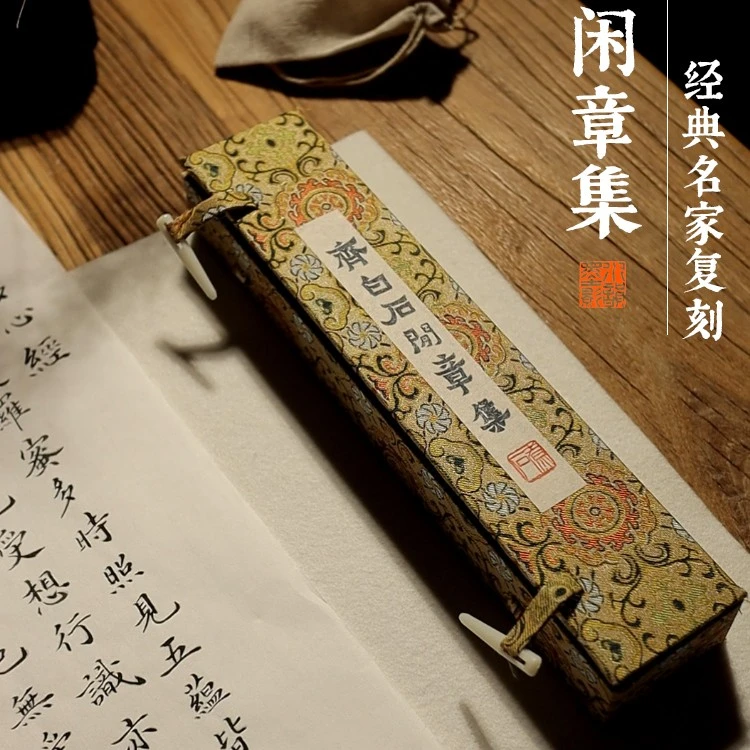 闲章集
经典名家复刻
齊白石閒章集
心經
羅蜜多時照見五蘊皆
受想行識亦
無